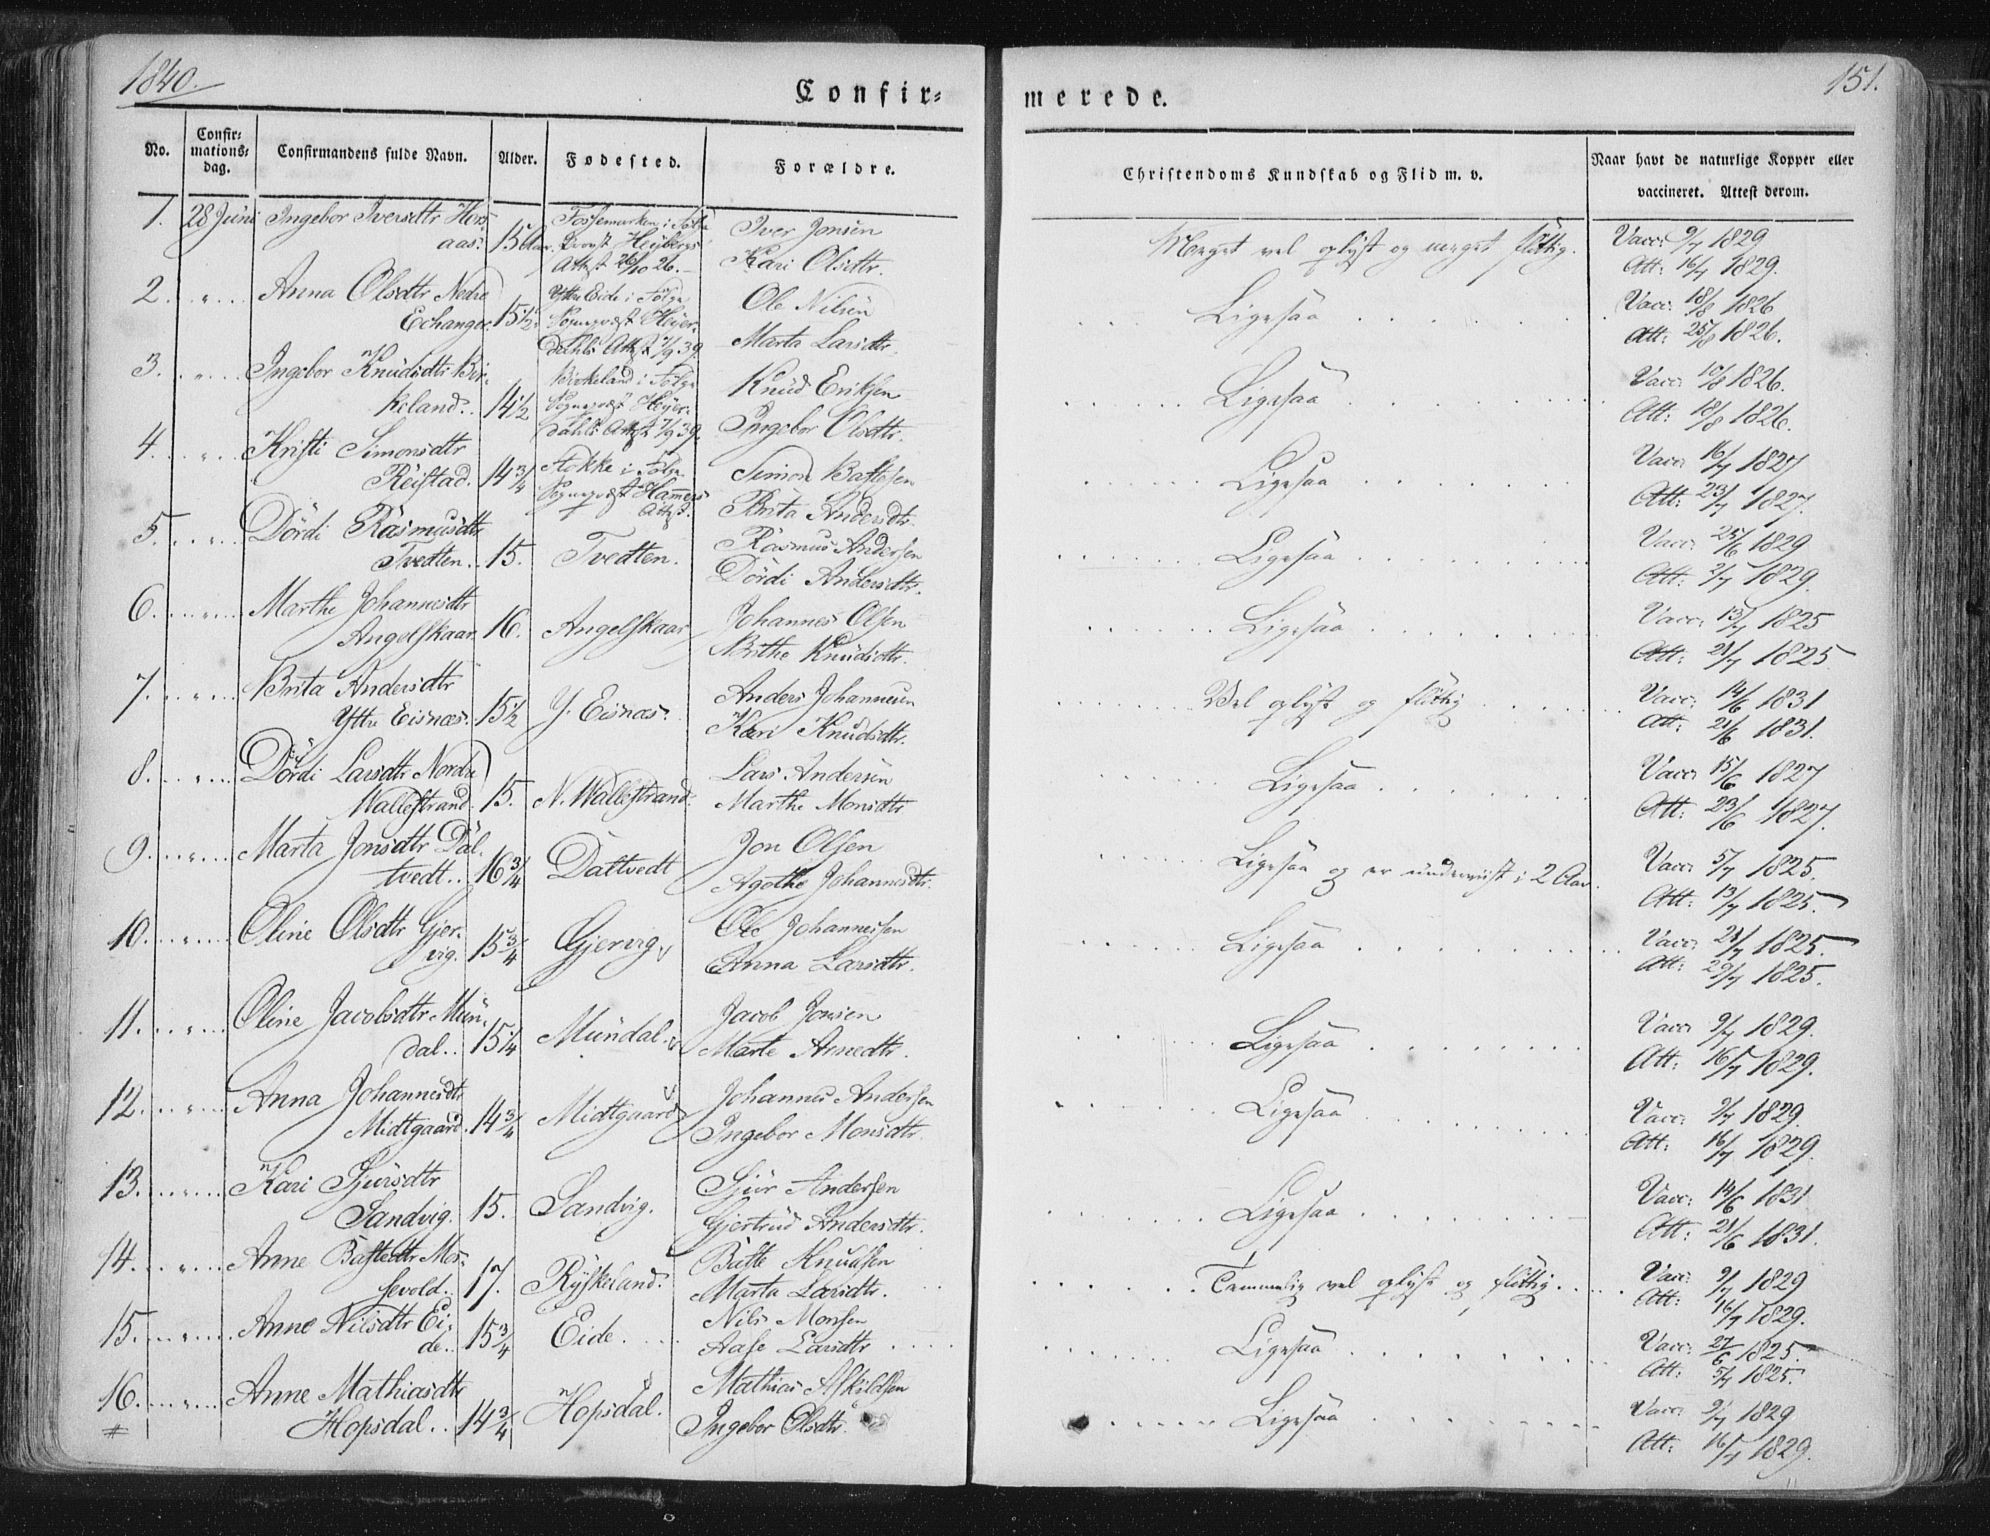 1840.
151.
Confir=
merede.
No. Confir=mations=dag. Confirmandens fulde Navn. Alder. Fødested. Forældre. Christendoms Kundskab og Flid m. v. Naar havt de naturlige Kopper eller vaccineret. Attest derom.
1. 28 Juni Ingebor Iversdtr 15 Aar. i Provst Heybergs Attest 26/10 26. Iver Jonsen Kari Olsdtr. Meget vel oplyst og meget flittig. Vacc: 9/7 1829 Att: 16/7 1829.
2. " Anna Olsdtr Nedre Echanger. 15 1/2. Yttre Eide i Sognepræst Heyerdahls Attest 7/9 39. Ole Nilsen Marta Larsdtr. Ligesaa Vacc: 18/8 1826 Att: 25/8 1826.
3. " Ingebor Knudsdtr Birkeland. 14 1/2 Birkeland i Sognepræst Heyerdahls Attest 7/9 39. Knud Eriksen Ingebor Olsdtr. Ligesaa Vacc: 10/8 1826. Att: 18/8 1826.
4. " Kristi Simonsdtr Reistad. 14 3/4 Stokke i Sognepræst Hammers Attest. Simon Bastesen Brita Andersdtr. Ligesaa Vacc: 16/7 1827 Att: 23/7 1827.
5. " Dördi Rasmusdtr Tvedten. 15. Tvedten. Rasmus Andersen Dördi Andersdtr. Ligesaa Vacc: 25/6 1829 Att: 2/7 1829.
6. " Marthe Johannesdtr Angelskaar 16. Angelskaar Johannes Olsen Brithe Knudsdtr. Ligesaa Vacc: 13/7 1825 Att: 21/7 1825
7. " Brita Andersdtr Yttre Eisnæs. 15 1/2 Y. Eisnæs. Anders Johannesen Kari Knudsdtr. Vel oplyst og flittig Vacc: 14/6 1831 Att: 21/6 1831.
8. " Dördi Larsdtr Nordre Wallestrand. 15. N. Wallestrand. Lars Andersen Marthe Monsdtr Ligesaa Vacc: 15/6 1827 Att: 23/6 1827.
9. " Marta Jonsdtr Daltvedt. 16 3/4 Daltvedt Jon Olsen Agothe Johannesdtr. Ligesaa og er underviist i 2 Aar. Vacc: 5/7 1825. Att: 13/7 1825.
10. " Oline Olsdtr Gjervig. 15 3/4 Gjervig Ole Johannessen Anna Larsdtr. Ligesaa Vacc: 21/7 1825. Att: 29/7 1825.
11. " Oline Jacobsdtr Mundal. 15 1/4 Mundal. Jacob Jonsen Marte Arnedtr. Ligesaa Vacc: 9/7 1829. Att: 16/7 1829.
12. " Anna Johannesdtr Midtgaard. 14 3/4 Midtgaard Johannes Andersen Ingebor Monsdtr. Ligesaa Vacc: 9/7 1829. Att: 16/7 1829.
13. " Kari Sjursdtr Sandvig. 15. Sandvig. Sjur Andersen Gjertrud Andersdtr. Ligesaa Vacc: 14/6 1831 Att: 21/6 1831.
14. " Anne Bastedtr Mosevold. 17. Ryskeland. Baste Knudsen Marta Larsdtr. Temmelig vel oplyst og flittig. Vacc: 9/7 1829 Att: 16/7 1829.
15. " Anne Nilsdtr Eide. 15 3/4 Eide. Nils Monsen Aase Larsdtr Ligesaa Vacc: 27/6 1825. Att: 5/7 1825.
16. " Anne Mathiasdtr Hopsdal. 14 3/4 Hopsdal. Mathias Askildsen Ingebor Olsdtr. Ligesaa Vacc: 9/7 1829 Att: 16/7 1829.